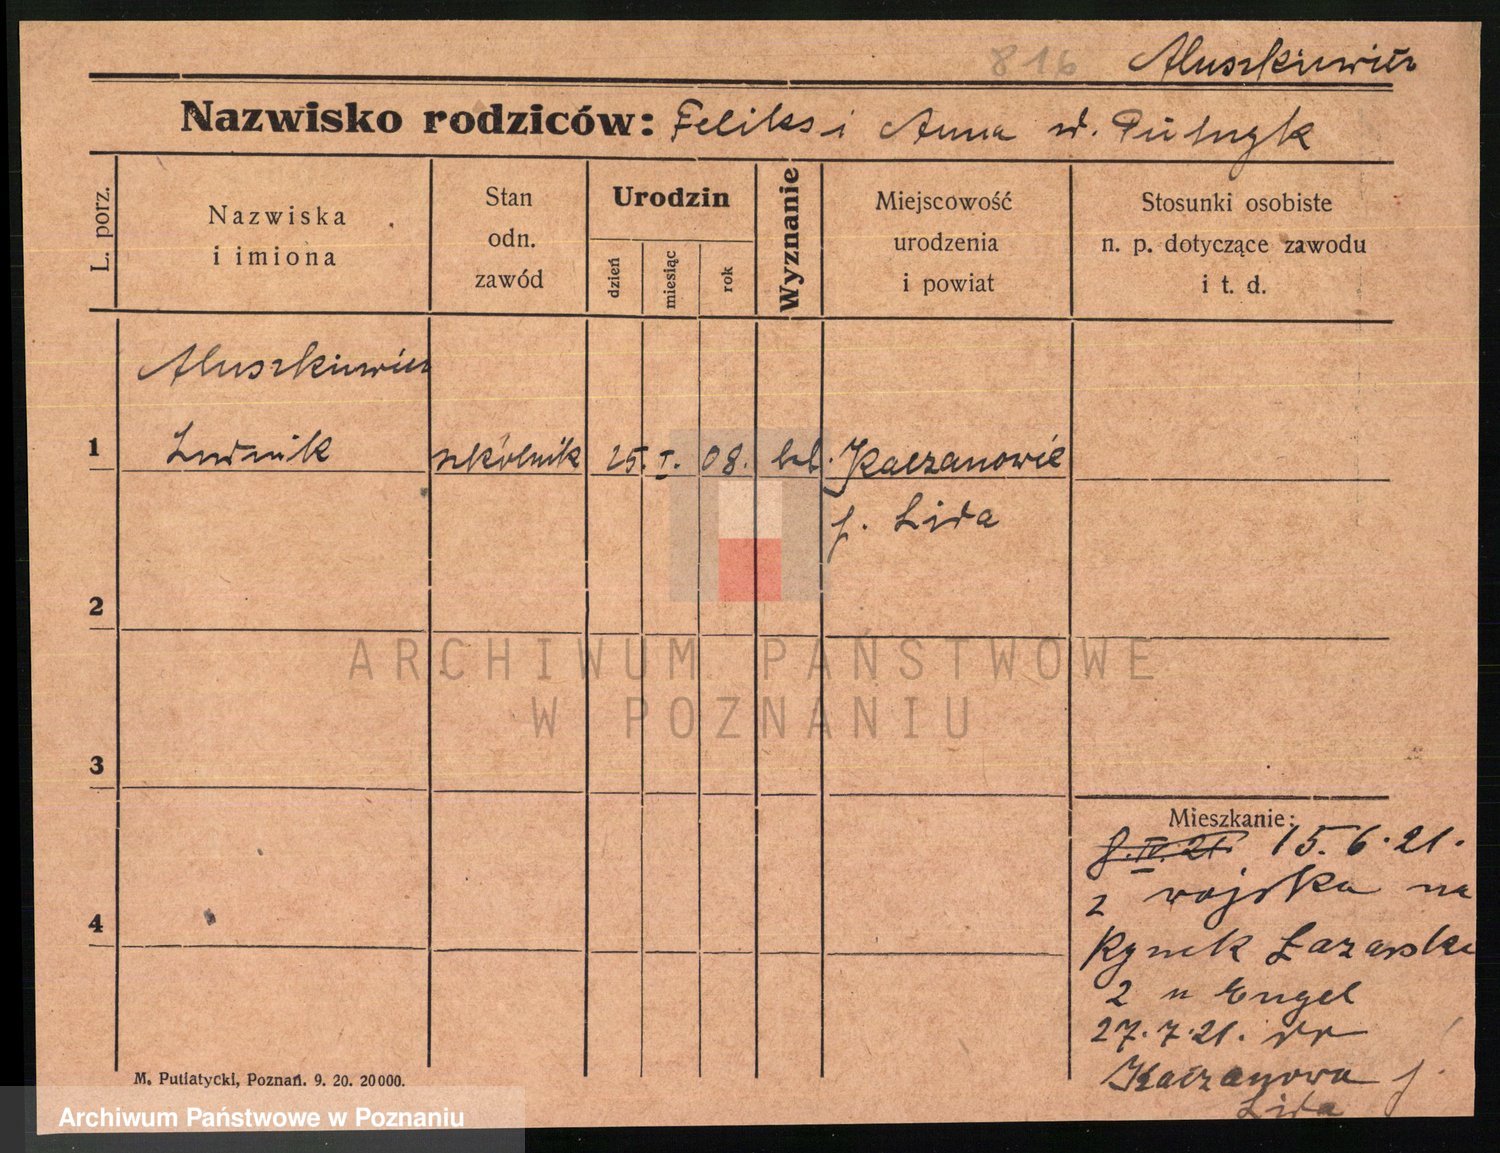 816 Aluszkiewicz
Nazwisko rodziców: Feliks i Anna d.
L. porz.
Nazwiska
i imiona
Stan
odn.
zawód
Urodzin
dzień
miesiąc
rok
Wyznanie
Miejscowość
urodzenia
i powiat
Stosunki osobiste
n. p. dotyczące zawodu
i t. d.
Aluszkiewicz
1 Ludwik szkólnik 25. I. 08. kat. Kaczanowic
p. Lida
2
3
4
Mieszkanie:
8.IV.21. 15.6.21.
z wojska na
Rynek Łazarski
2 u Engel
27.7.21. do
Kaczanowa p.
Lida
M. Putiatycki, Poznań. 9. 20. 20000.
ARCHIWUM PAŃSTWOWE
W POZNANIU
Archiwum Państwowe w Poznaniu